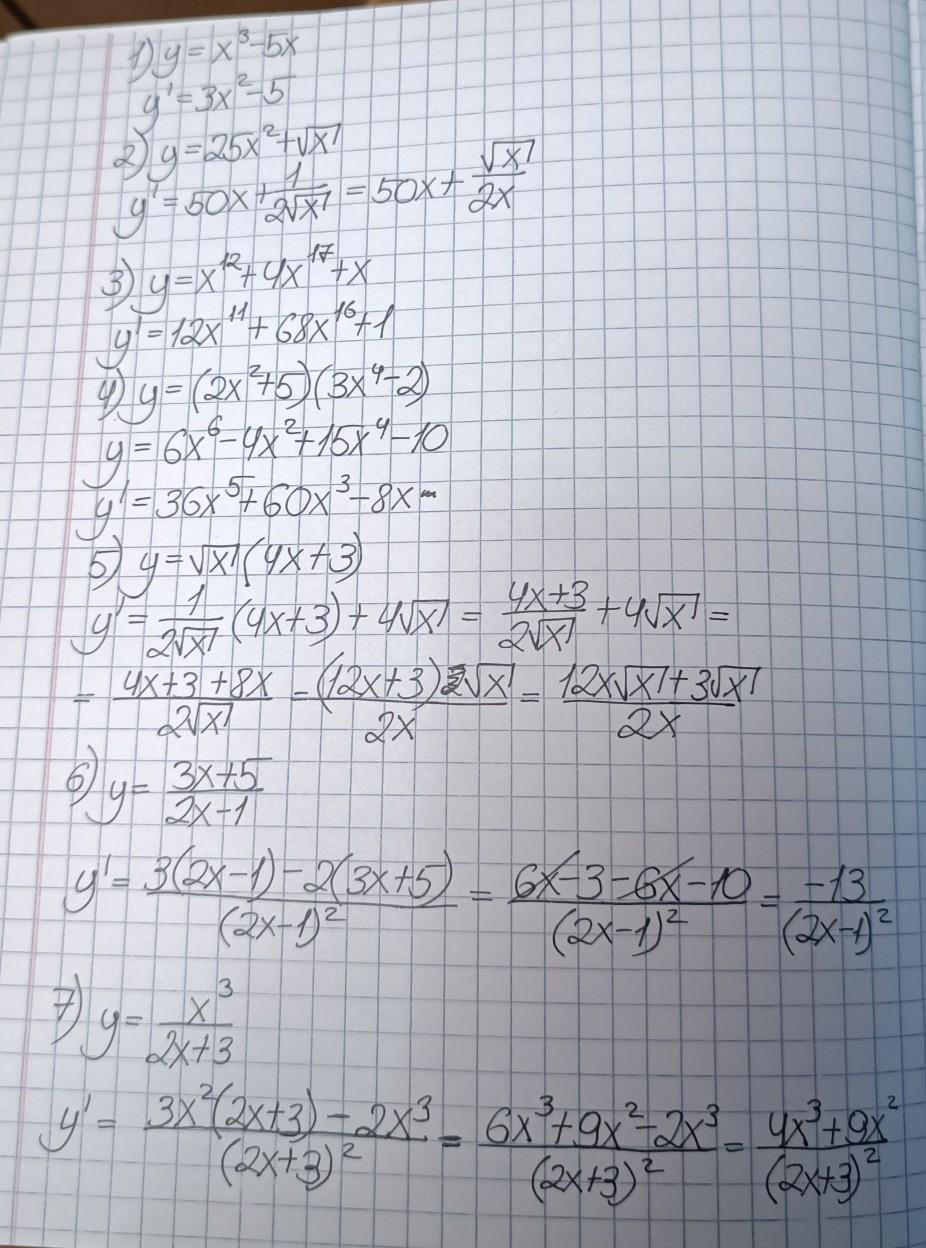 1) y = x³ - 5x
y' = 3x² - 5
2) y = 25x² + √x
y' = 50x + 1/(2√x) = 50x + √x/(2x)
3) y = x¹² + 4x¹⁷ + x
y' = 12x¹¹ + 68x¹⁶ + 1
4) y = (2x² + 5)(3x⁴ - 2)
y = 6x⁶ - 4x² + 15x⁴ - 10
y' = 36x⁵ + 60x³ - 8x
5) y = √x (4x + 3)
y' = 1/(2√x) (4x + 3) + 4√x = (4x + 3)/(2√x) + 4√x =
= (4x + 3 + 8x)/(2√x) = (12x + 3)√x/(2x) = (12x√x + 3√x)/(2x)
6) y = (3x + 5)/(2x - 1)
y' = (3(2x - 1) - 2(3x + 5))/(2x - 1)² = (6x - 3 - 6x - 10)/(2x - 1)² = -13/(2x - 1)²
7) y = x³/(2x + 3)
y' = (3x²(2x + 3) - 2x³)/(2x + 3)² = (6x³ + 9x² - 2x³)/(2x + 3)² = (4x³ + 9x²)/(2x + 3)²